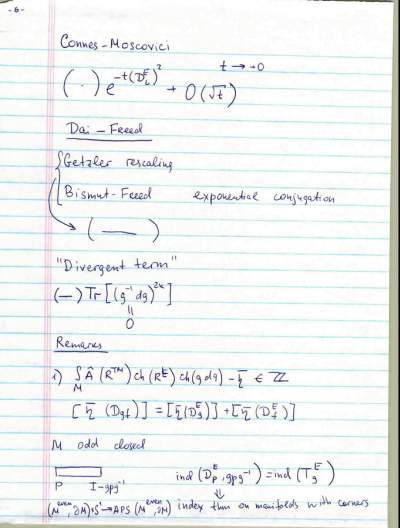 -6-
Connes-Moscovici
t → +0
( · ) e^{-t(D^E_t)^2} + O(√t)
Dai-Freed
Getzler rescaling
Bismut-Freed exponential conjugation
( — )
"Divergent term"
(—) Tr[(g^{-1}dg)^{2k}]
=
0
Remarks
1) ∫_M Â(R^{TM}) ch(R^E) ch(g dg) - η̄ ∈ ℤ
[η̄(D_{gf})] = [η̄(D^E_g)] + [η̄(D^E_f)]
M odd closed
P I-gpg^{-1} ind(D^E_P, gpg^{-1}) = ind(T^E_g)
⇓
(M^{even}, ∂M)×S^1 → APS(M^{even}, ∂M) index thm on manifolds with corners